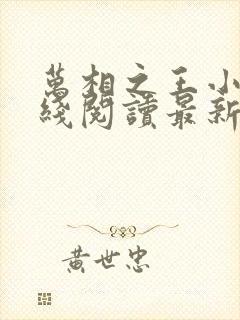 萬相之王小
綫閱讀最新
黄世忠